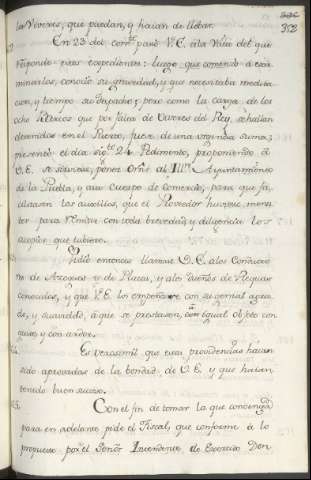 353
los Viveres, que puedan, y haian de llebar.
En 23 del corr.te pasó V.E. á la Vista del que
responde estos expedientes: luego que comenzó á exa-
minarlos, conoció su gravedad, y que necesitaba medita-
cion, y tiempo; pero como la carga de los
ocho que por falta de Viveres del Rey, se hallan
detenidos en el Puerto, fuese de una urgencia suma;
presentó el dia sig.te 24 Pedimento, proponiendo á
V.E. se sirviese, poner Orn. al Ill.e Ayuntamiento
de la Puebla, y a su Cuerpo de Comercio, para que fa-
cilitasen los auxilios, que el Provedor huviese menes-
ter para remitir con toda brevedad, y diligencia los
acopios que tubiese.
Pidió entonces llamase V.E. á los Conducto-
res de Azogues y de Platas, y á los dueños de Requas
conocidas, y que V.E. los empeñase con su genial agra-
do, y suavidad, á que se prestasen, con igual objeto con
gusto y con ardor.
Es verosimil que estas providencias haian
sido aprovadas de la bondad de V.E. y que haian
tenido buen suceso.
Con el fin de tomar la que convenga
para en adelante pide el Fiscal, que conforme á lo
propuesto por el Señor Intendente de Exercito Don